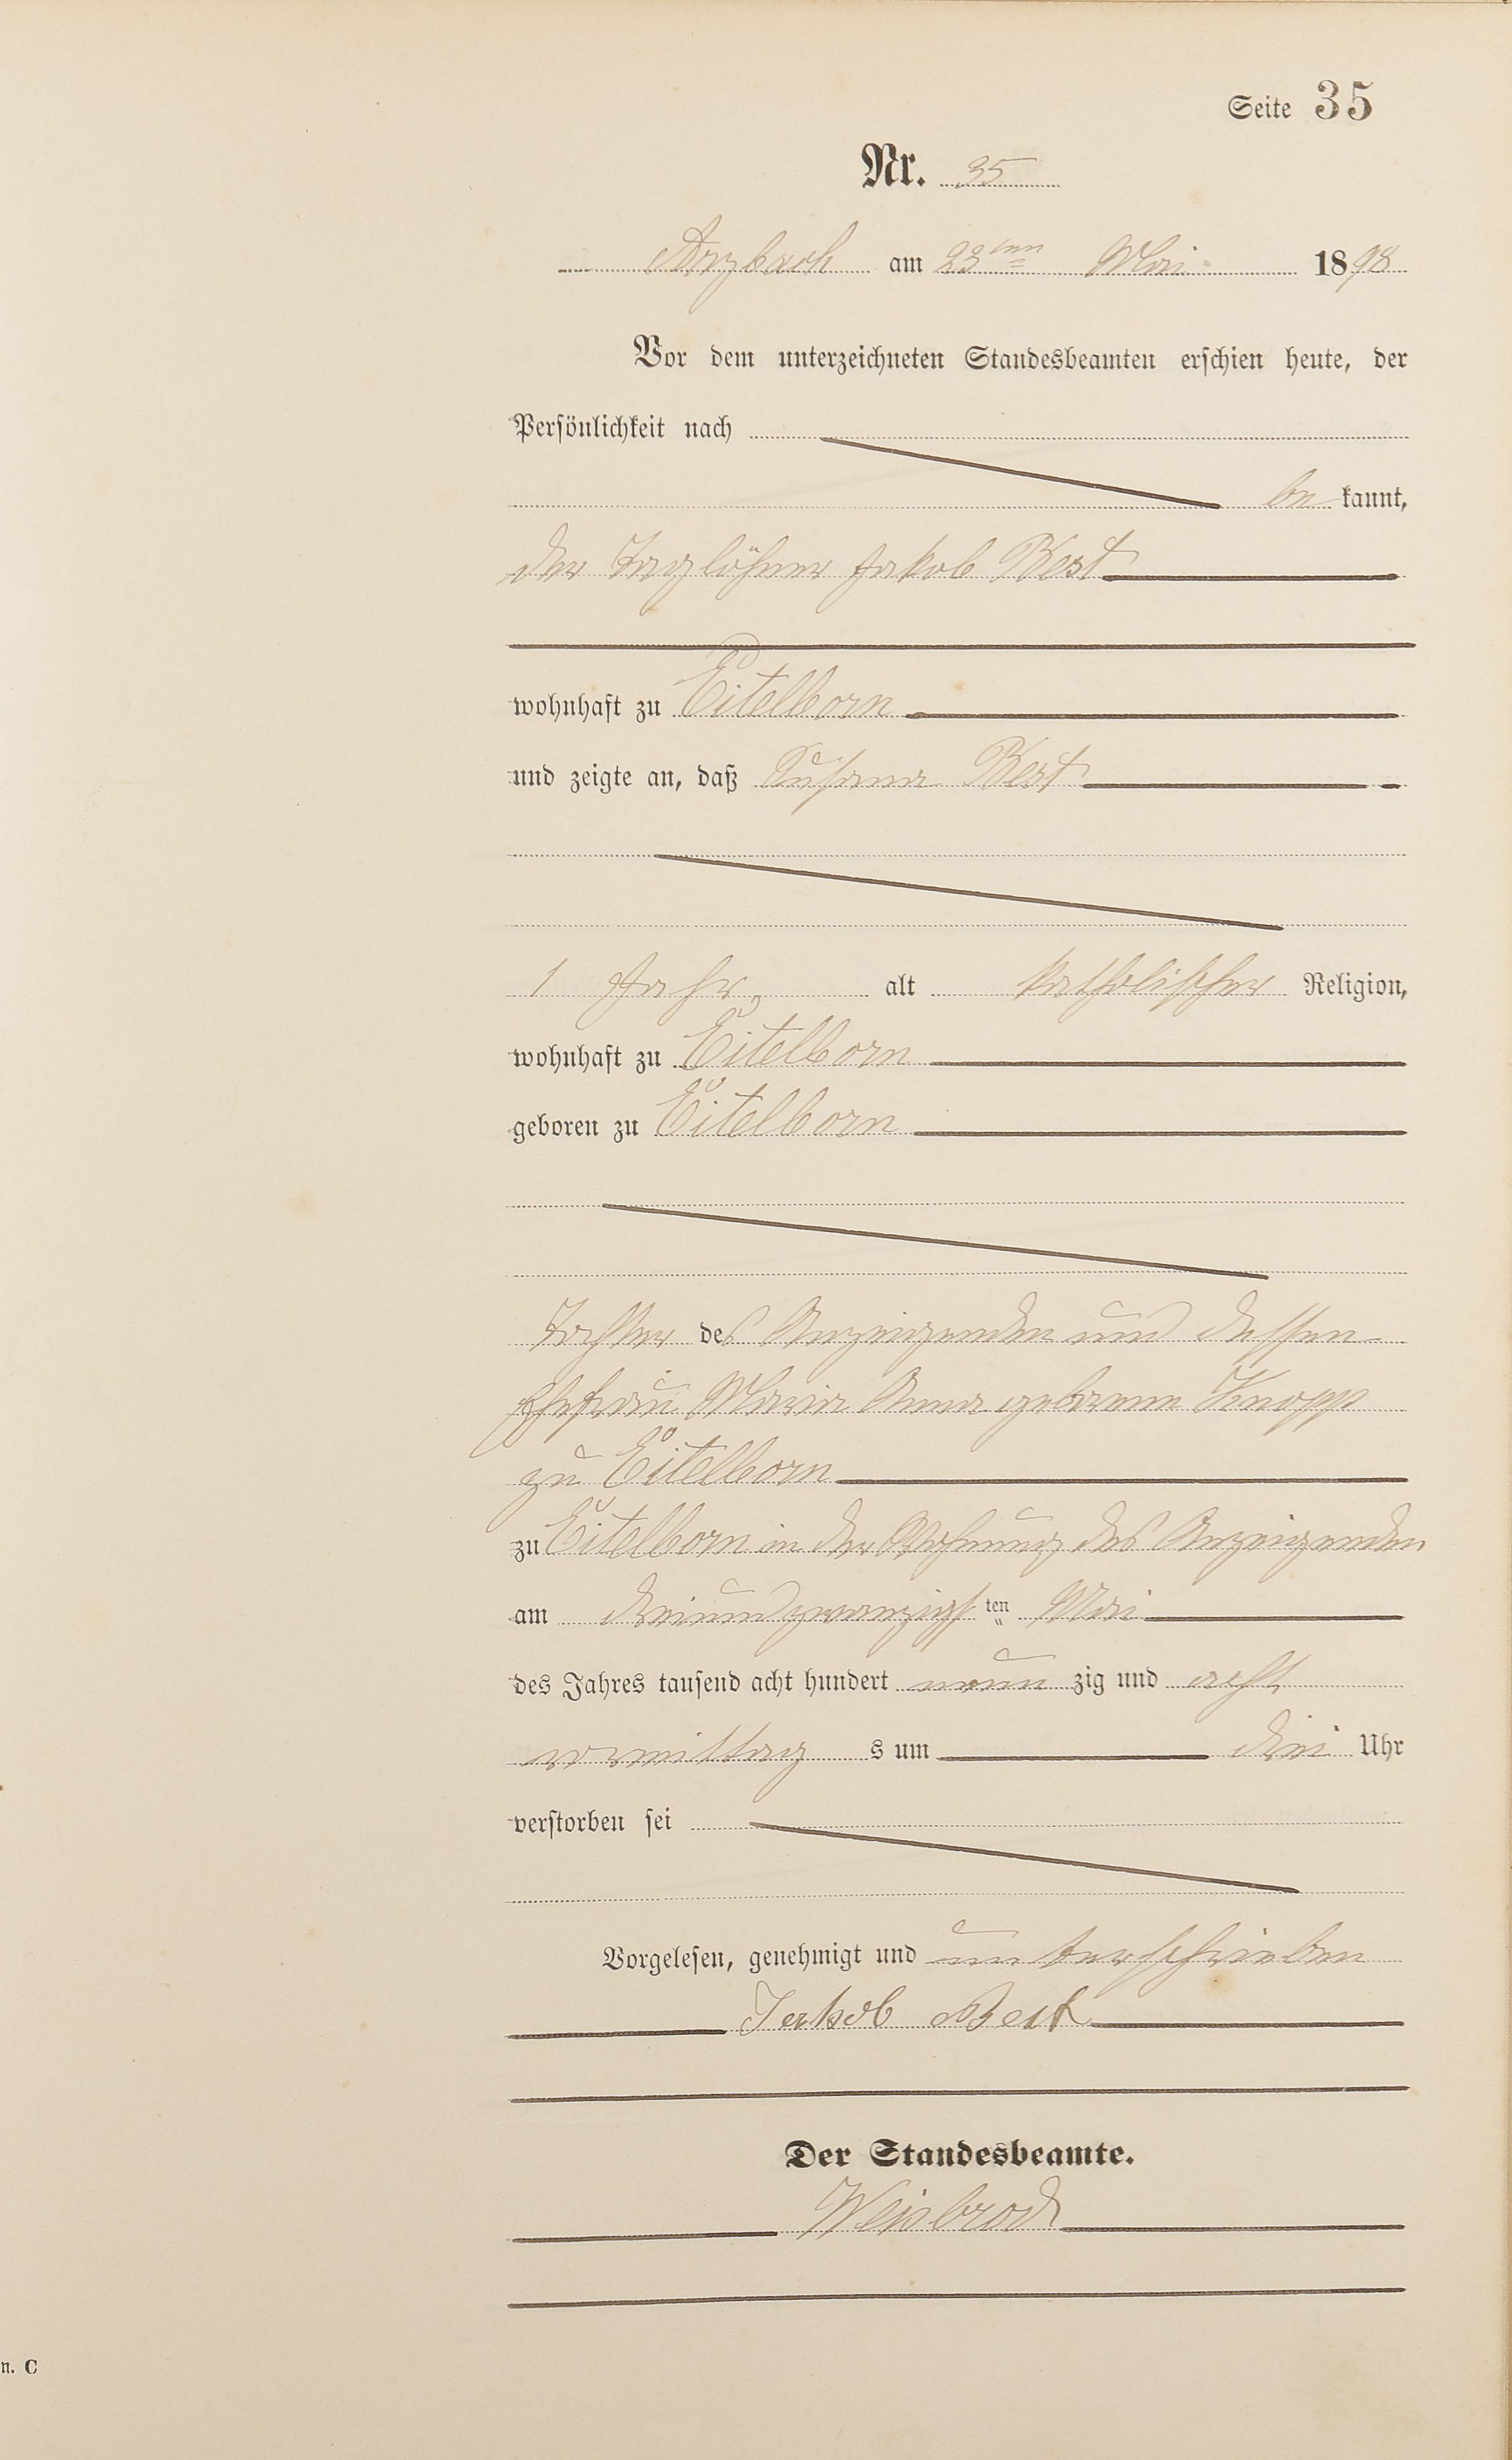 Seite 35
Nr. 35
Arzbach am 23ten Mai 1898
Vor dem unterzeichneten Standesbeamten erschien heute, der
Persönlichkeit nach
be kannt,
der Taglöhner Jakob Best
wohnhaft zu Eitelborn
und zeigte an, daß Susana Best
1 Jahr, alt katholischer Religion,
wohnhaft zu Eitelborn
geboren zu Eitelborn
Tochter des Anzeigenden und dessen
Ehefrau Maria Anna geborene Knopp
zu Eitelborn
zu Eitelborn in der Wohnung des Anzeigenden
am dreiundzwanzigsten Mai
des Jahres tausend acht hundert neun zig und acht
vormittag s um drei Uhr
verstorben sei
Vorgelesen, genehmigt und unterschrieben
Jakob Best
Der Standesbeamte.
Weisbrod
n. C